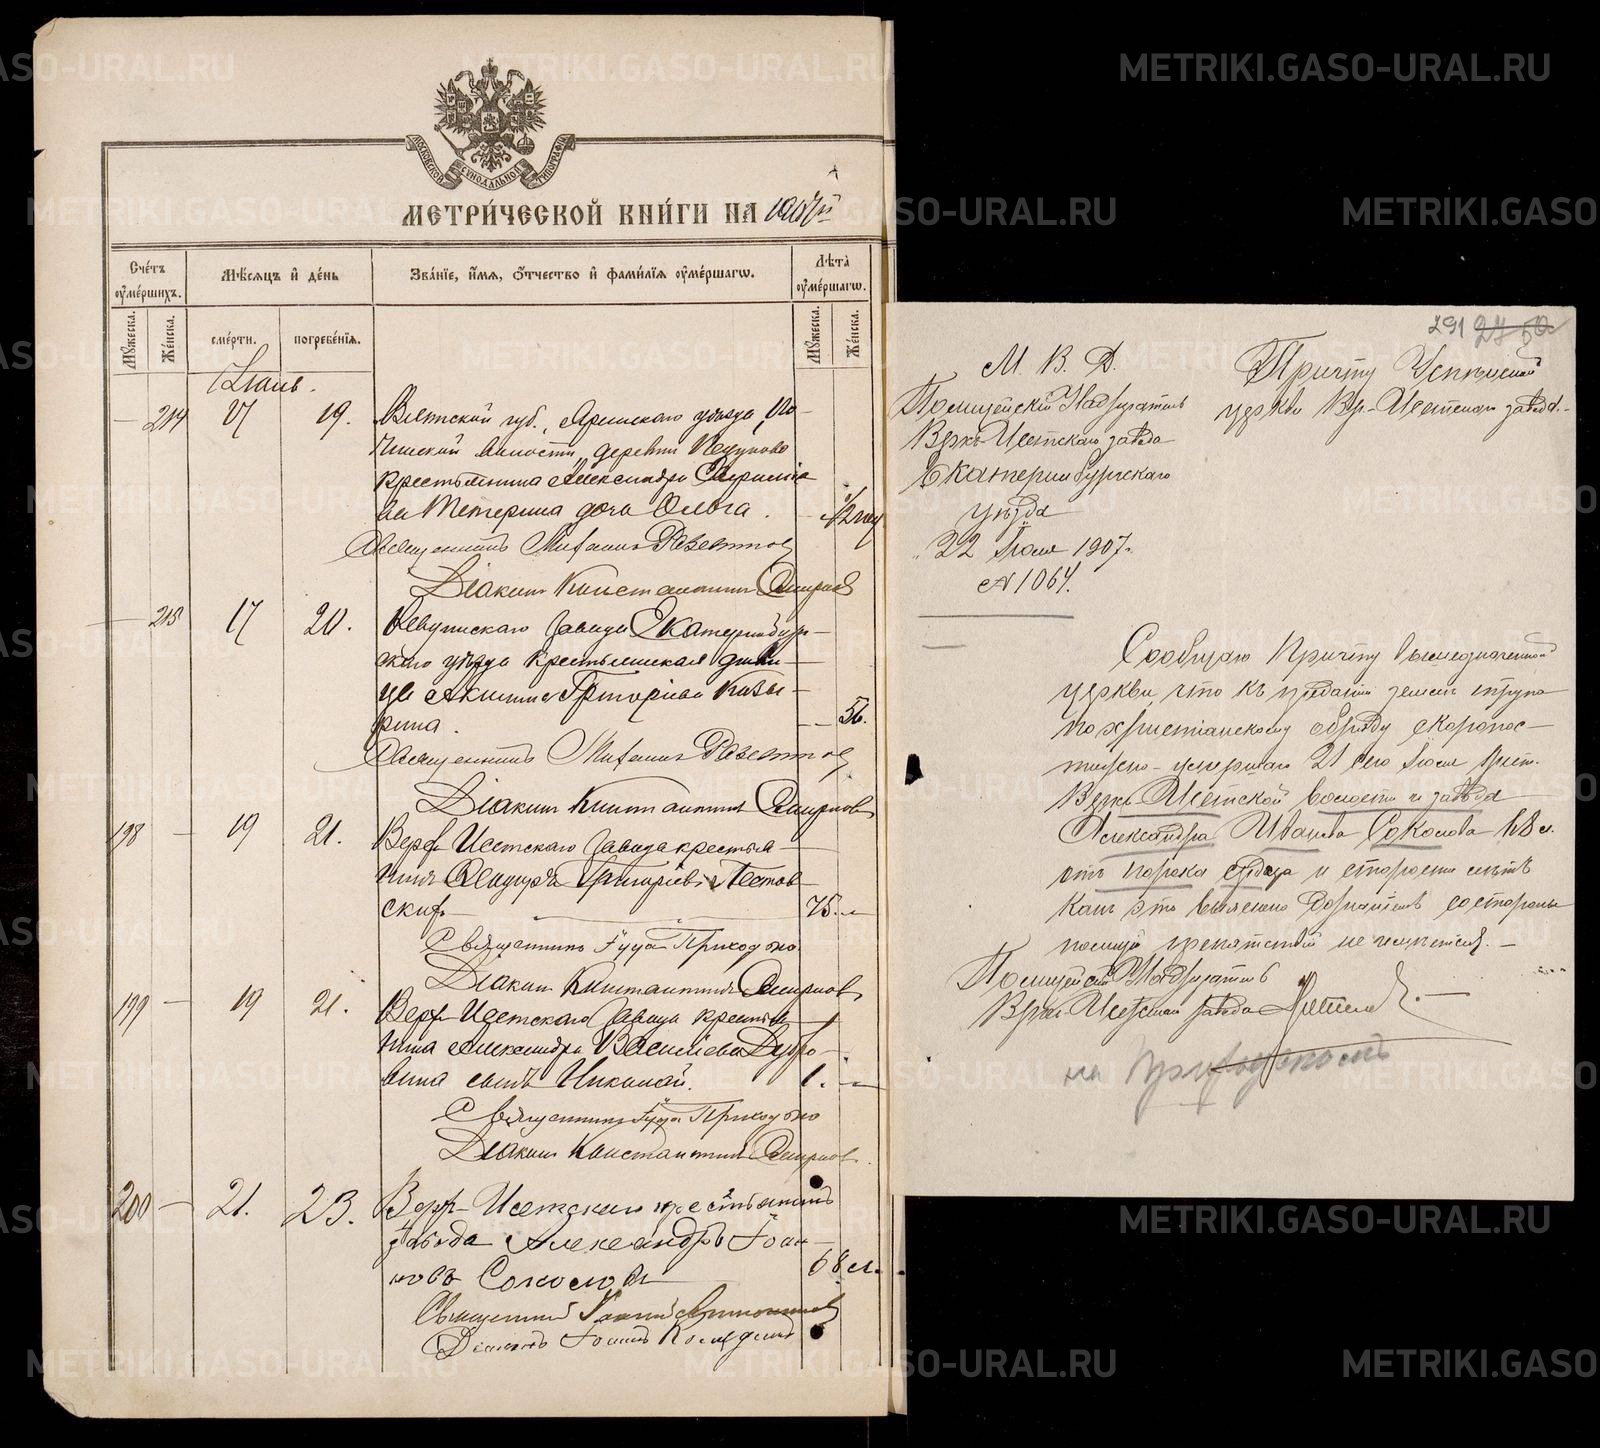 МОСКОВСКОЙ СѴНОДАЛЬНОЙ ТИПОГРАФІИ
МЕТРИ́ЧЕСКОЙ КНИ́ГИ НА 1907й
Сче́тъ ᲂу҆ме́ршихъ.
Мѣ́сяцъ и҆ де́нь
Зва́нїе, и҆́мѧ, ѻ҆́тчество и҆ фами́лїѧ ᲂу҆ме́ршагѡ.
Лѣта̀ ᲂу҆ме́ршагѡ.
Мꙋ́жеска.
Же́нска.
сме́рти.
погребе́нїѧ.
Мꙋ́жеска.
Же́нска.
Іюль.
— 214 17 19. Вятской губ., Яранскаго уѣзда,
волости, деревни
крестьянина Александра
ва Тетерина дочь Ольга. 1/2 год
Священникъ Михаилъ
Діаконъ Константинъ Смирновъ
— 215 17 20. Невьянскаго завода Екатеринбур-
скаго уѣзда крестьянская дѣви-
ца Григоріева Казы-
рина. — 56.
Священникъ Михаилъ
Діаконъ Константинъ Смирновъ
198 — 19 21. Верхъ Исетскаго завода крестья-
нинъ Григорьевъ Пестов-
скихъ 75. —
Священникъ Іуда Приходько
Діаконъ Константинъ Смирновъ
199 — 19 21. Верхъ-Исетскаго завода крестья-
нина Александра Василіева Дубро-
вина сынъ Николай. 1. —
Священникъ Іуда Приходько
Діаконъ Константинъ Смирновъ.
200 — 21. 23. Верх-Исетскаго крестьянинъ
завода Александръ Іоан-
новъ Соколовъ 68 л.
Священникъ Іоаннъ
Діаконъ Іоаннъ
291 2750
М. В. Д.
Полицейскій Надзиратель
Верхъ-Исетскаго завода
Екатеринбургскаго
уѣзда
22 Іюля 1907г.
№ 1064.
Причту Успенской
церкви Вр-Исетскаго завода.
Сообщаю Причту вышеозначенной
церкви, что къ преданію землѣ трупа
по христіанскому обряду скоропос-
тижно-умершаго 21 сего Іюля крест.
Верхъ-Исетской волости и завода
Александра Иванова Соколова 68 л.
отъ порока сердца и старости лѣтъ
какъ это выяснено дознаніемъ со стороны
полиціи препятствій не имѣется. —
Полицейскій Надзиратель
Верхъ-Исетскаго завода